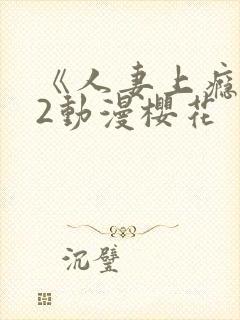 《人妻上瘾
2動漫櫻花
沉璧